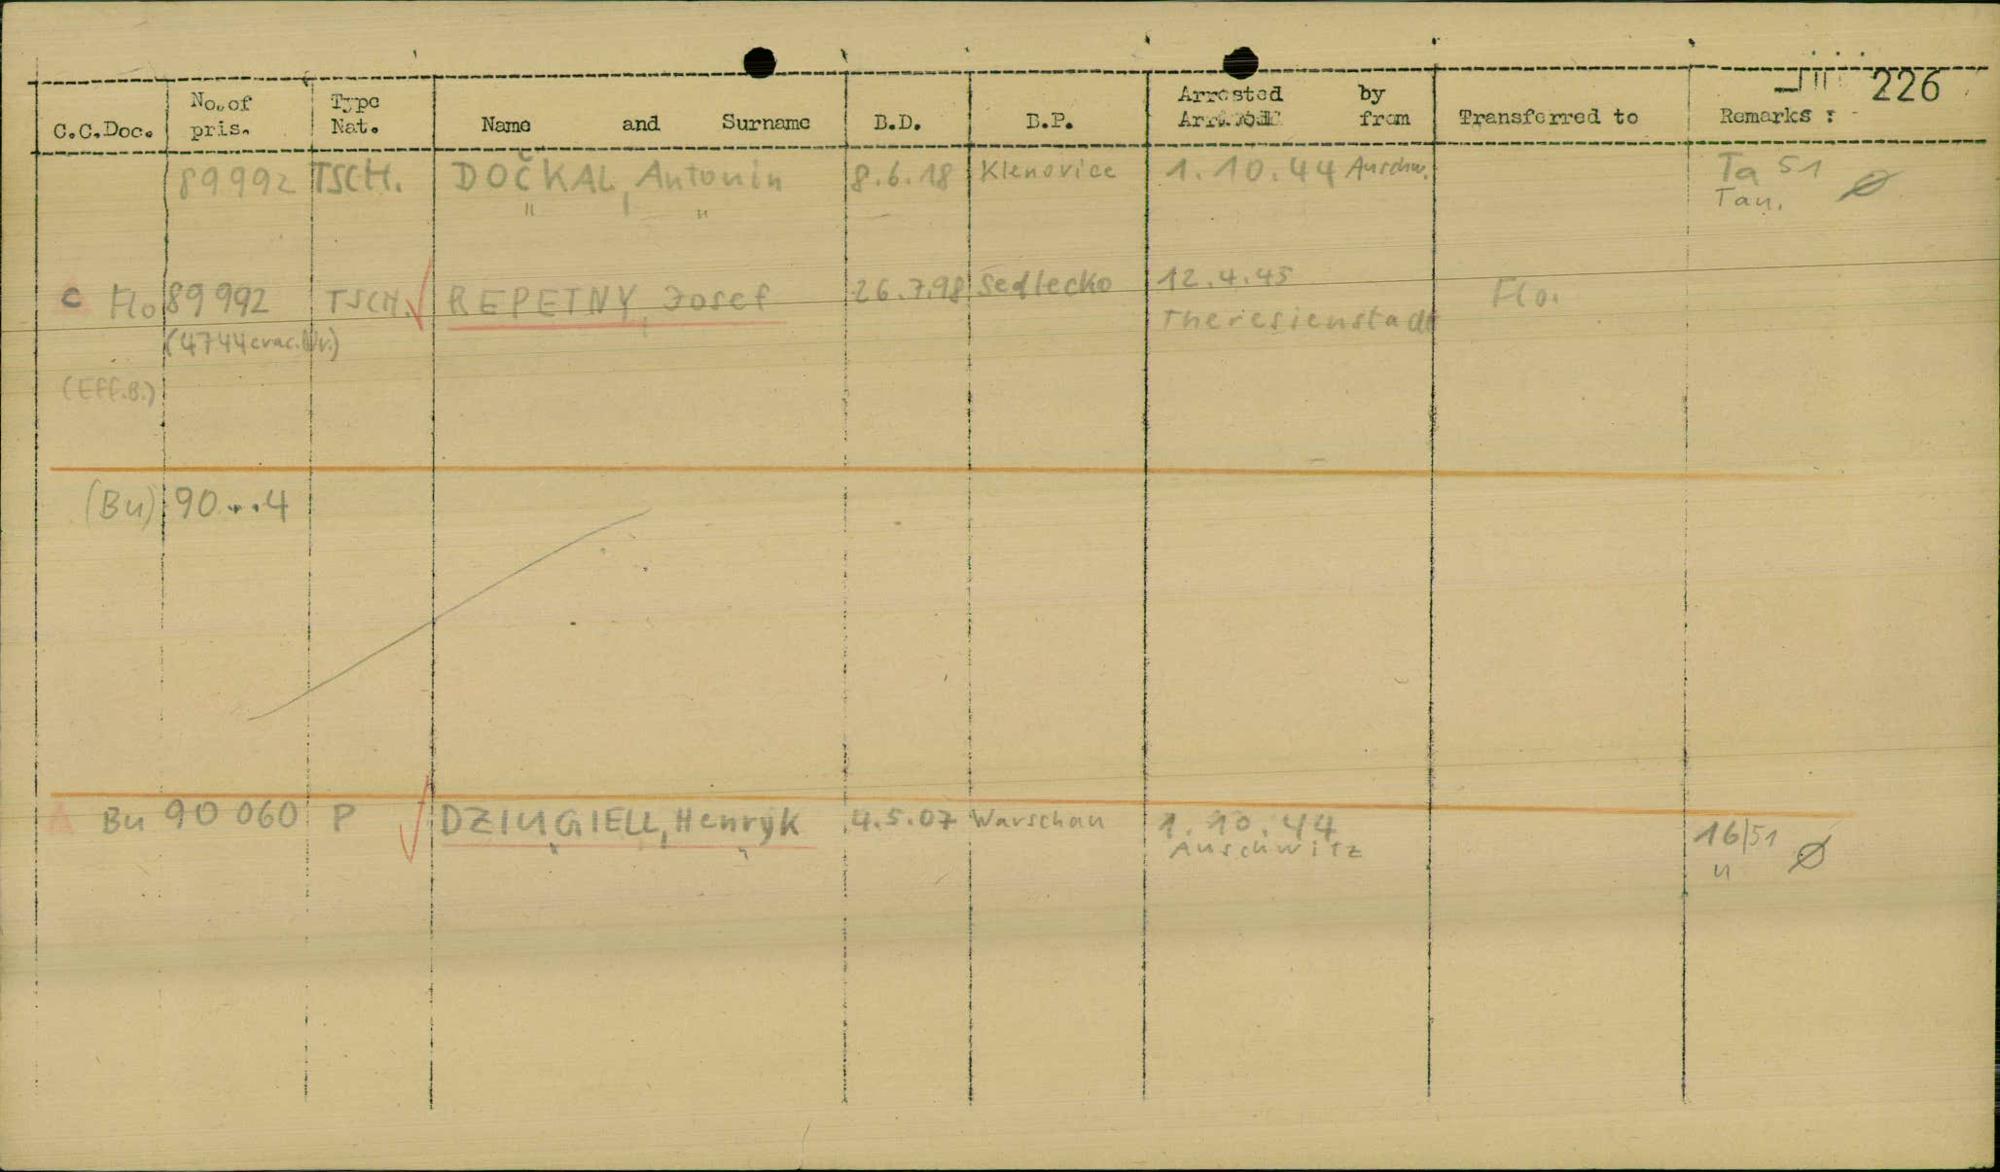 226
C.C.Doc. No. of pris. Type Nat. Name and Surname B.D. B.P. Arrested by from Transferred to Remarks :
89992 TSCH. DOČKAL, Antonin 8.6.18 Klenovice 1.10.44 Auschw. Ta 51
" " Tau. Ø
C Flo 89992 TSCH. REPETNY, Josef 26.7.98 Sedlecko 12.4.45 Flo.
(4744 evac. Nr.) Theresienstadt
(Eff.B.)
(Bu) 90..4
A Bu 90 060 P DZIUGIELL, Henryk 4.5.07 Warschau 1.10.44 16/51 Ø
Auschwitz u